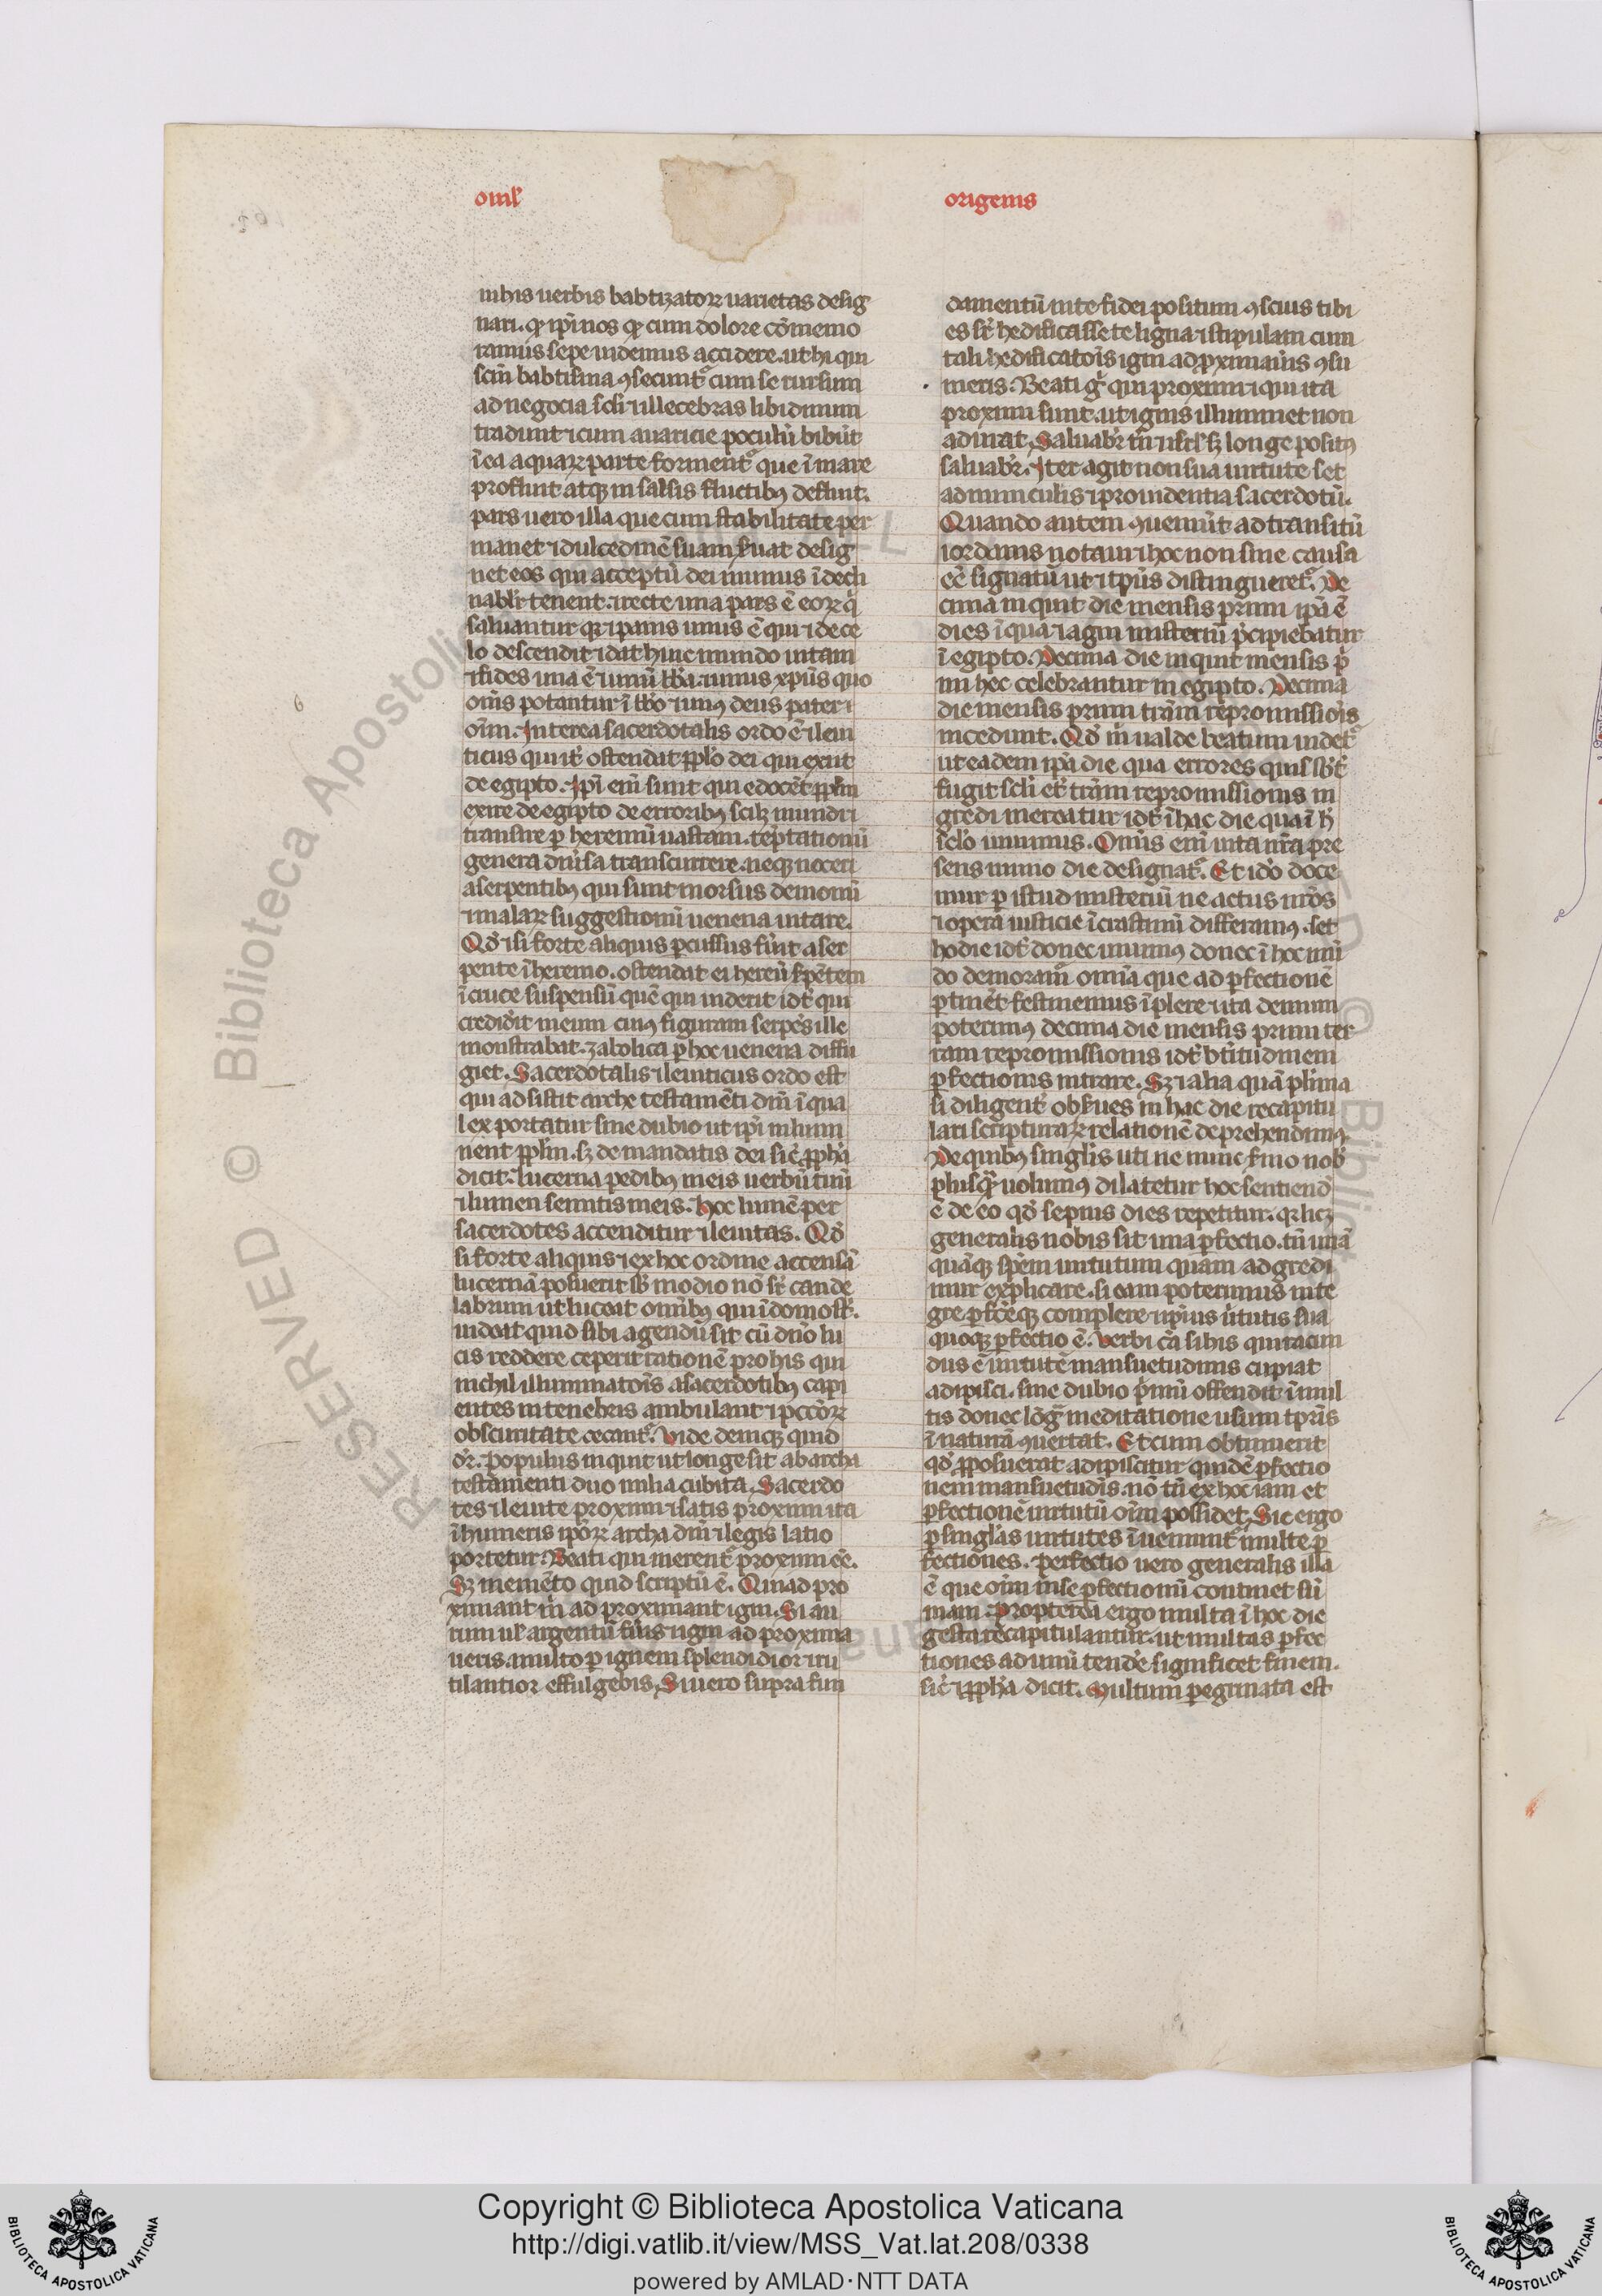 omł
origenis
in his uerbis babtizatoꝝ uarietas desig
nari. qͥ ip̄i nos qͥ cum dolore cōmemo
ramus sepe uidemus accidere. ut hi qui
scm̄ babtisma ꝯsecunt᷑ cum se rursum
ad negocia scl̄i ⁊ illecebras libidinum
tradunt ⁊ cum auaricie poculū bibūt
ī ea aquaꝝ parte forment᷑ que ī mare
profluit atqꝫ in salsis fluctibꝯ defluit.
pars uero illa que cum stabilitate per
manet ⁊ dulcedinē suam seruat desig
net eos qui acceptū dei munus īdecli
nabl̓r tenent. ⁊ recte una pars ē eoꝝ qͥ
saluantur qꝛ ⁊ panis unus ē qui ⁊ de ce
lo descendit ⁊ dat huic mundo uitam
⁊ fides una ē ⁊ unū bb̄a. ⁊ unus xp̄us quo
om̄s potantur ī bb̄o ⁊ unꝯ deus pater ⁊
oīm. Interea sacerdotalis ordo ē ⁊ leui
ticus qui it̓ ostendat ppl̄o dei qui exiit
de egipto. Ip̄i enī sunt qui edocēt ppl̄m
exire de egipto de erroribꝯ scilꝫ mundi ⁊
transire ꝑ heremū uastam. temptationū
genera diuersa transcurrere. neqꝫ noceri
a serpentibꝯ qui sunt morsus demonū
⁊ malaꝝ suggestionū uenena uitare.
Qd̓ ⁊ si forte aliquis ꝑcussus fūit a ser
pente ī heremo. ostendat ei hereū serpētem
ī cruce suspensū quē qui uiderit id̄t qui
crediderit in eum cuiꝯ figuram serpēs ille
monstrabat. zabolica ꝑ hoc uenena diffu
giet. Sacerdotalis ⁊ leuiticus ordo est
qui adsistit arche testamēti dn̄i ī qua
lex portatur sine dubio ut ip̄i inlumi
nent ppl̄m. sꝫ de mandatis dei sic̄ ppha
dicit. lucerna pedibꝯ meis uerbū tuū
⁊ lumen semitis meis. hoc lumē per
sacerdotes accenditur ⁊ leuitas. Qd̓
si forte aliquis ⁊ ex hoc ordine accensā
lucernā posuerit sb̄ modio nō sr̄ cande
labrum ut luceat om̄ibꝯ qui ī domo sūt.
uideat quid sibi agendū sit cū dn̄o lu
cis reddere ceperit rationē pro his qui
nichil illuminatōis a sacerdotibꝯ capi
entes in tenebris ambulant ⁊ pccōꝝ
obscuritate cecant᷑. Uide deniqꝫ quid
dr̄. populus inquit ut longe sit ab archa
testamenti duo milia cubita. Sacerdo
tes ⁊ leuite proximi ⁊ satis proximi ita
ī humeris ip̄oꝝ archa dn̄i ⁊ legis latio
portetur. Beati qui merent᷑ proximi eē.
Sꝫ memēto quid scriptū ē. Qui ad pro
ximant m̄ ad proximant igni. Si au
rum ul̄ argentū fūis ⁊ igni ad proxima
ueris. multo ꝑ ignem splendidior ⁊ ru
tilantior effulgebis. Si uero supra fun
damentū in te fidei positum ꝯscius tibi
es sr̄ hedificasse te ligna ⁊ stipulam cum
tali hedificatōis igni ad proximaūis ꝯsu
meris. Beati gͦ qui proximi ⁊ qui ita
proximi sunt. ut ignis illuminet non
adurat. Saluabr̄ tn̄ ⁊ isrl̄ sꝫ longe positꝯ
saluabr̄. Iter agit non sua uirtute set
adminiculis ⁊ prouidentia sacerdotū.
Quando autem ꝯuenūt ad transitū
iordanis notaui ⁊ hoc non sine causa
eē signatū ut ⁊ tp̄us distingueret᷑. De
cima inquit die mensis primi ip̄a ē
dies ī qua ⁊ agni misteriū p̄cipiebatur
ī egipto. Decima die inquit mensis p̄
mi hec celebrantur in egipto. Decima
die mensis primi tr̄am repromissiōis
incedunt. Qd̓ m̄ ualde beatum uidet᷑
ut eadem ip̄a die qua errores quis sb̄t̓
fugit scl̄i et̓ tr̄am repromissionis in
gredi mereatur id̄t ī hac die qua ī h̓
sc̄lo uiuimus. Om̄is eni uita nr̄a pre
sens in uno die designat᷑. Et ido doce
mur ꝑ istud misteriū ne actus nr̄os
⁊ opera iusticie ī crastinū differamꝯ. set
hodie id̄t donec uiuimꝯ donec ī hoc mū
do demoram̄ om̄ia que ad ꝑfectionē
ꝑtinēt festinemus ī plere ⁊ ita demum
poterimꝯ decima die mensis primi ter
ram repromissionis id̄t bt̄itudinem
ꝑfectionis intrare. Sꝫ ⁊ alia quā plīma
si diligent̓ obserues in hac die recapitu
lari scripturaꝝ relationē deprehendimꝯ.
De quibꝯ singl̓is uti ne nunc sermo nob̓
plusqͣ uolumꝯ dilatetur hoc sentiend̄
ē de eo qd̓ sepius dies repetitur. qꝛ licꝫ
generalis nobis sit una ꝑfectio. tn̄ unā
quāqꝫ spēm uirtutum quam adgredi
mur explicare. si eam poterimus inte
gre ꝑfēqꝫ complere ⁊ ip̄ius ūtutis sua
quoqꝫ ꝑfectio ē. Verbi cā si his qui iracun
dus ē uirtutē mansuetudinis cupiat
adipisci. sine dubio p̄mū offendit ī mul
tis donec lōgͣ meditatione usum tp̄is
ī naturā ꝯuertat. Et cum obtinuerit
qd̓ pposuerat adipiscitur quidē ꝑfectio
nem mansuetudīs. nō tn̄ ex hoc iam et
ꝑfectionē uirtutū oīm possidet. Sic ergo
ꝑ singl̓as uirtutes ī ueniunt᷑ multe ꝑ
fectiones. perfectio uero generalis illa
ē que oīm in se ꝑfectionū continet sū
mam. Propterea ergo multa ī hoc die
gesta recapitulantur. ut multas ꝑfec
tiones ad unū tendere significet finem.
sic̄ ⁊ ppha dicit. Multum ꝑegrinata est
Copyright © Biblioteca Apostolica Vaticana
http://digi.vatlib.it/view/MSS_Vat.lat.208/0338
powered by AMLAD·NTT DATA